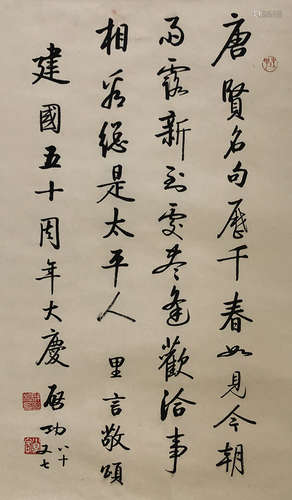 唐賢名句歷千春如見今朝
雨露新到處參逢歡洽事
相看總是太平人 里言敬頌
建國五十周年大慶 啓功
八十又七